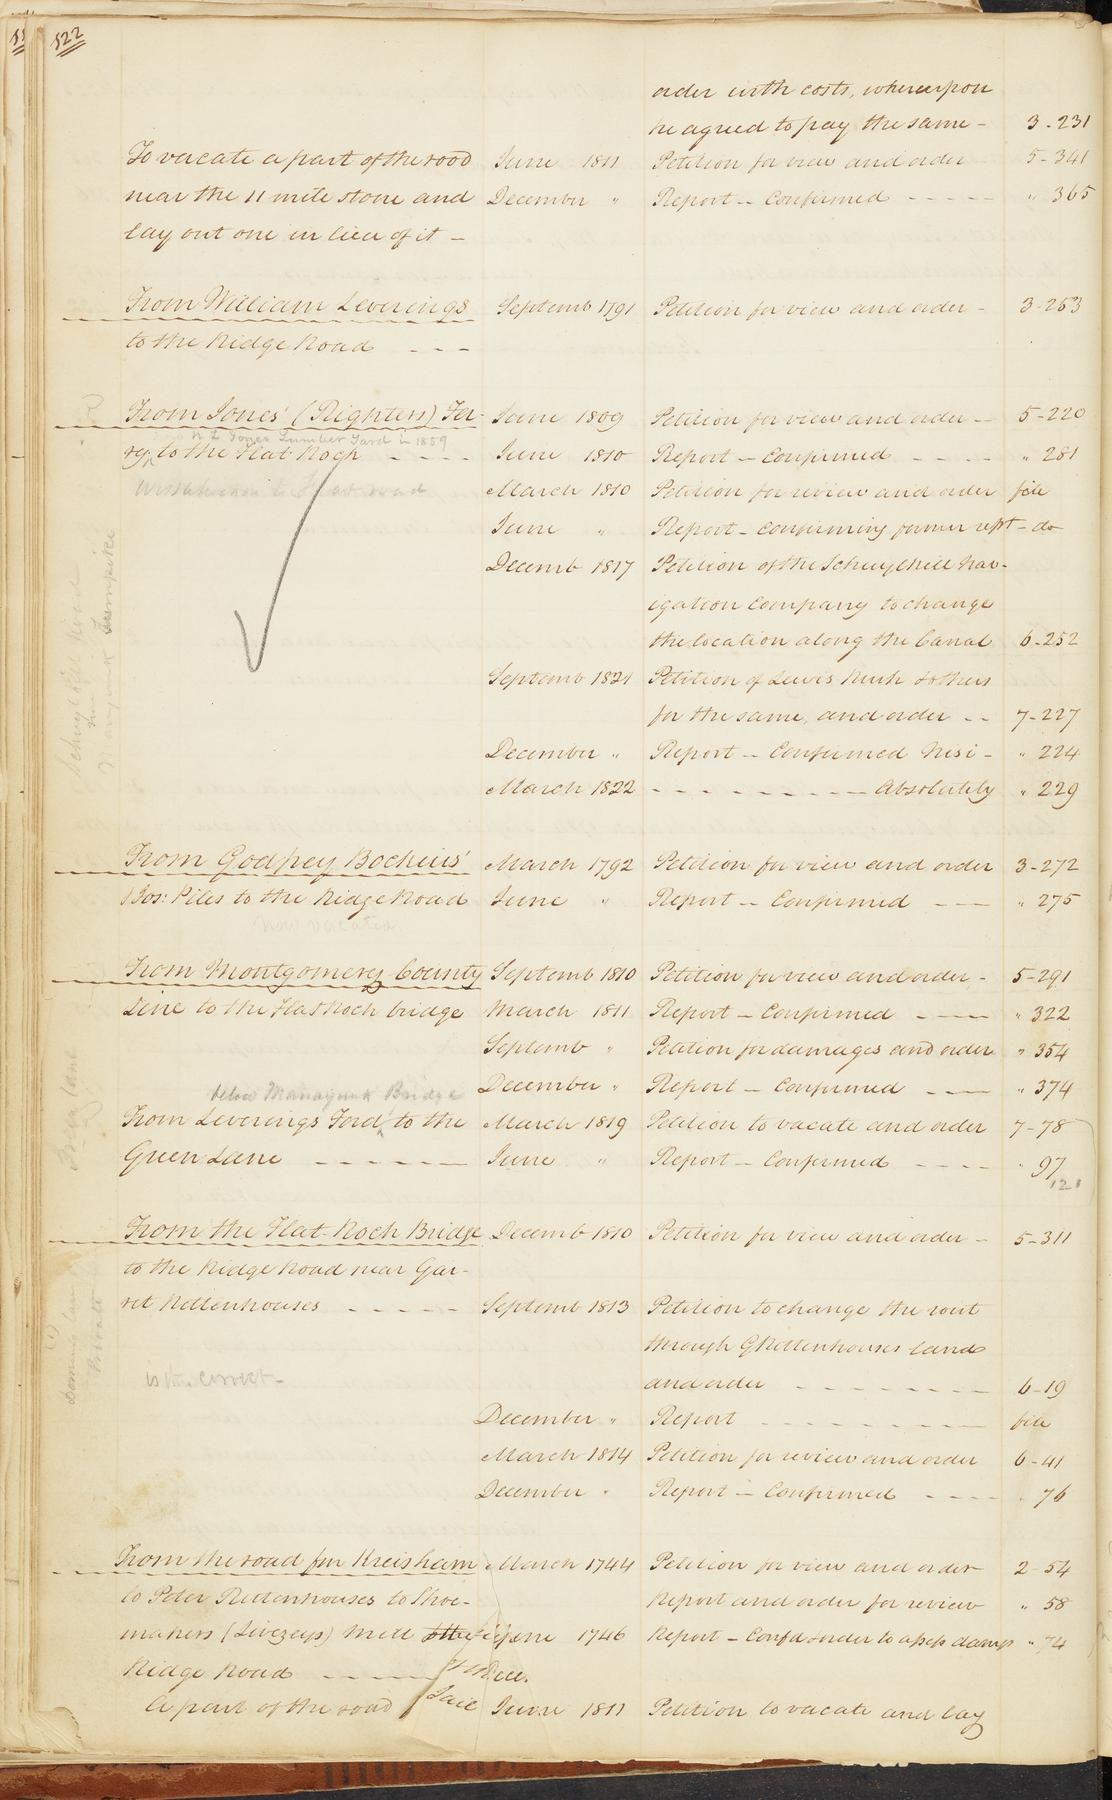 122
order with costs, whereupon
he agreed to pay the same - 3-231
To vacate a part of the road June 1811 Petition for view and order 5-341
near the 11 mile stone and December " Report -- Confirmed - - - - - " 365
lay out one in lieu of it -
From William Leverings Septemb 1791 Petition for view and order - 3-253
to the Ridge Road - - -
From Jones' (Righters) Fer- June 1809 Petition for view and order -- 5-220
N L Jones Lumber Yard in 1859
ry, to the Flat Rock - - - - June 1810 Report - Confirmed - - - - " 281
Wissahickon to Flat road March 1810 Petition for review and order file
June " Report - Confirming former rept - do
Decemb 1817 Petition of the Schuylkill Nav-
igation Company to change
the location along the Canal 6-252
Septemb 1821 Petition of Lewis Rush & others
for the same, and order - - 7-227
December " Report -- Confirmed Nisi - " 224
March 1822 - - - - - - - - - Absolutely " 229
Schuylkill River
Turnpike
From Godfrey Bockius' March 1792 Petition for view and order 3-272
& Jos: Piles to the Ridge Road June " Report -- Confirmed - - - " 275
now vacated
From Montgomery County Septemb 1810 Petition for view and order - 5-291
Line to the Flat Rock bridge March 1811 Report - Confirmed - - - " 322
Septemb " Petition for damages and order " 354
December " Report - Confirmed - - - " 374
below Manayunk Bridge
From Leverings Ford, to the March 1819 Petition to vacate and order 7-78
Green Lane - - - - - June " Report - Confirmed - - - - " 97
121
From the Flat Rock Bridge Decemb 1810 Petition for view and order - 5-311
to the Ridge Road near Gar-
ret Rittenhouses - - - - - Septemb 1813 Petition to change the rout
through G Rittenhouses land
and order - - - - - - - 6-19
is this correct -
December " Report - - - - - - - - file
March 1814 Petition for review and order 6-41
December " Report - Confirmed - - - - " 76
From the road fm Kreisham March 1744 Petition for view and order 2-54
to Peter Rittenhouses to Shoe- Report and order for review " 58
makers (Livezeys) Mill June 1746 Report - Confd & order to assess damgs " 74
Ridge Road - - - - - Dece.
A part of the road June 1811 Petition to vacate and lay